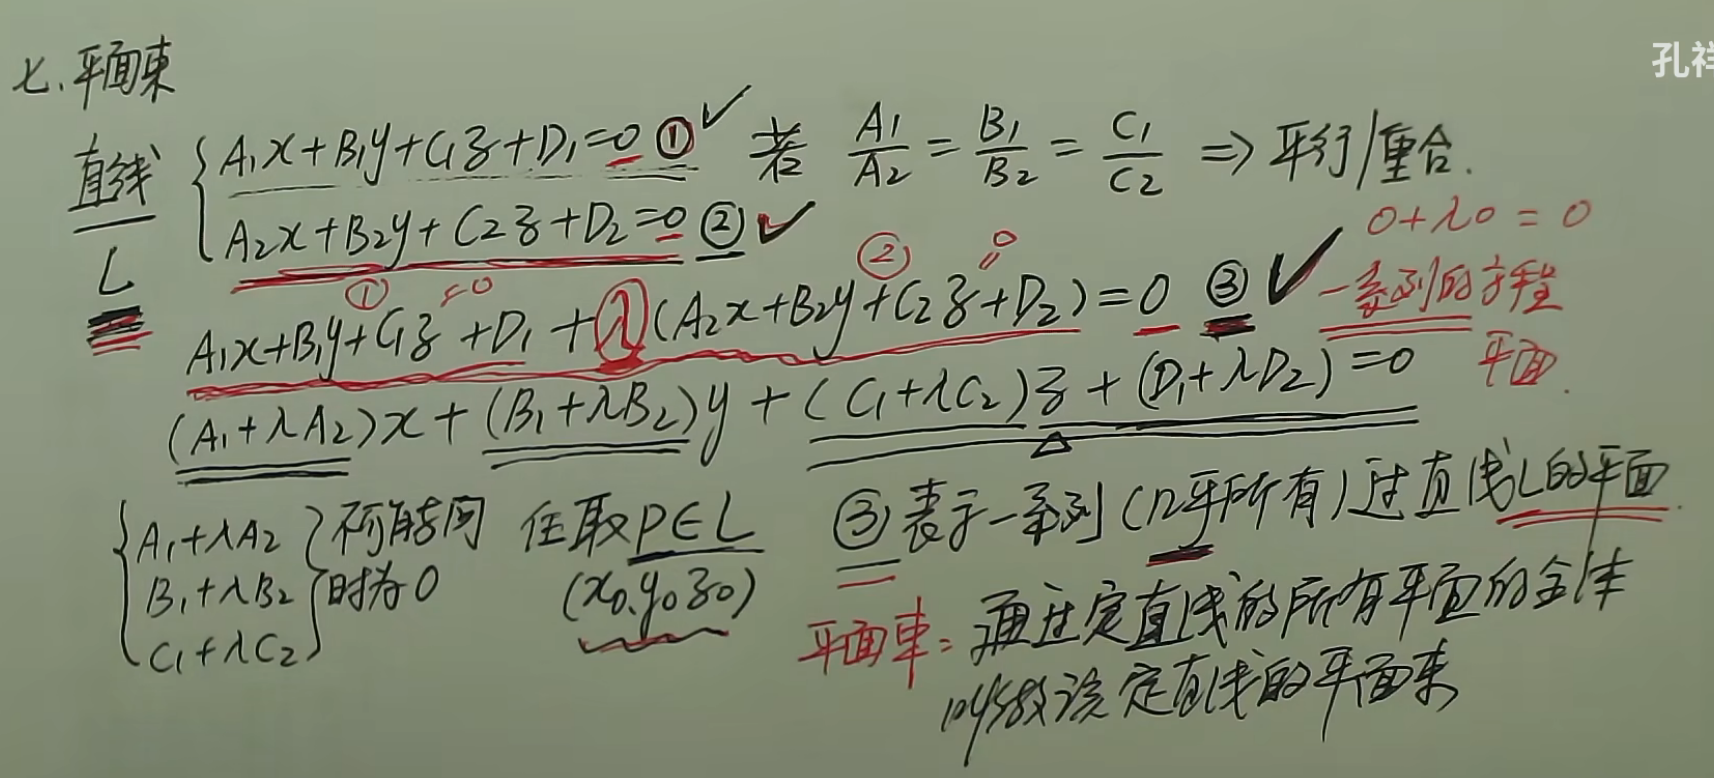 孔祥
七.平面束
直线 L
A₁x+B₁y+C₁z+D₁=0 ① ✓ 若 A₁/A₂ = B₁/B₂ = C₁/C₂ ⇒ 平行/重合.
A₂x+B₂y+C₂z+D₂=0 ② ✓
0+λ0=0
① =0 ② =0
A₁x+B₁y+C₁z+D₁+λ(A₂x+B₂y+C₂z+D₂)=0 ③ ✓ 一系列的方程
平面.
(A₁+λA₂)x+(B₁+λB₂)y+(C₁+λC₂)z+(D₁+λD₂)=0
A₁+λA₂
B₁+λB₂
C₁+λC₂
不能同
时为0
任取P∈L
(x₀,y₀z₀)
③表示一系列(几乎所有)过直线L的平面.
平面束: 通过定直线的所有平面的全体
叫做该定直线的平面束